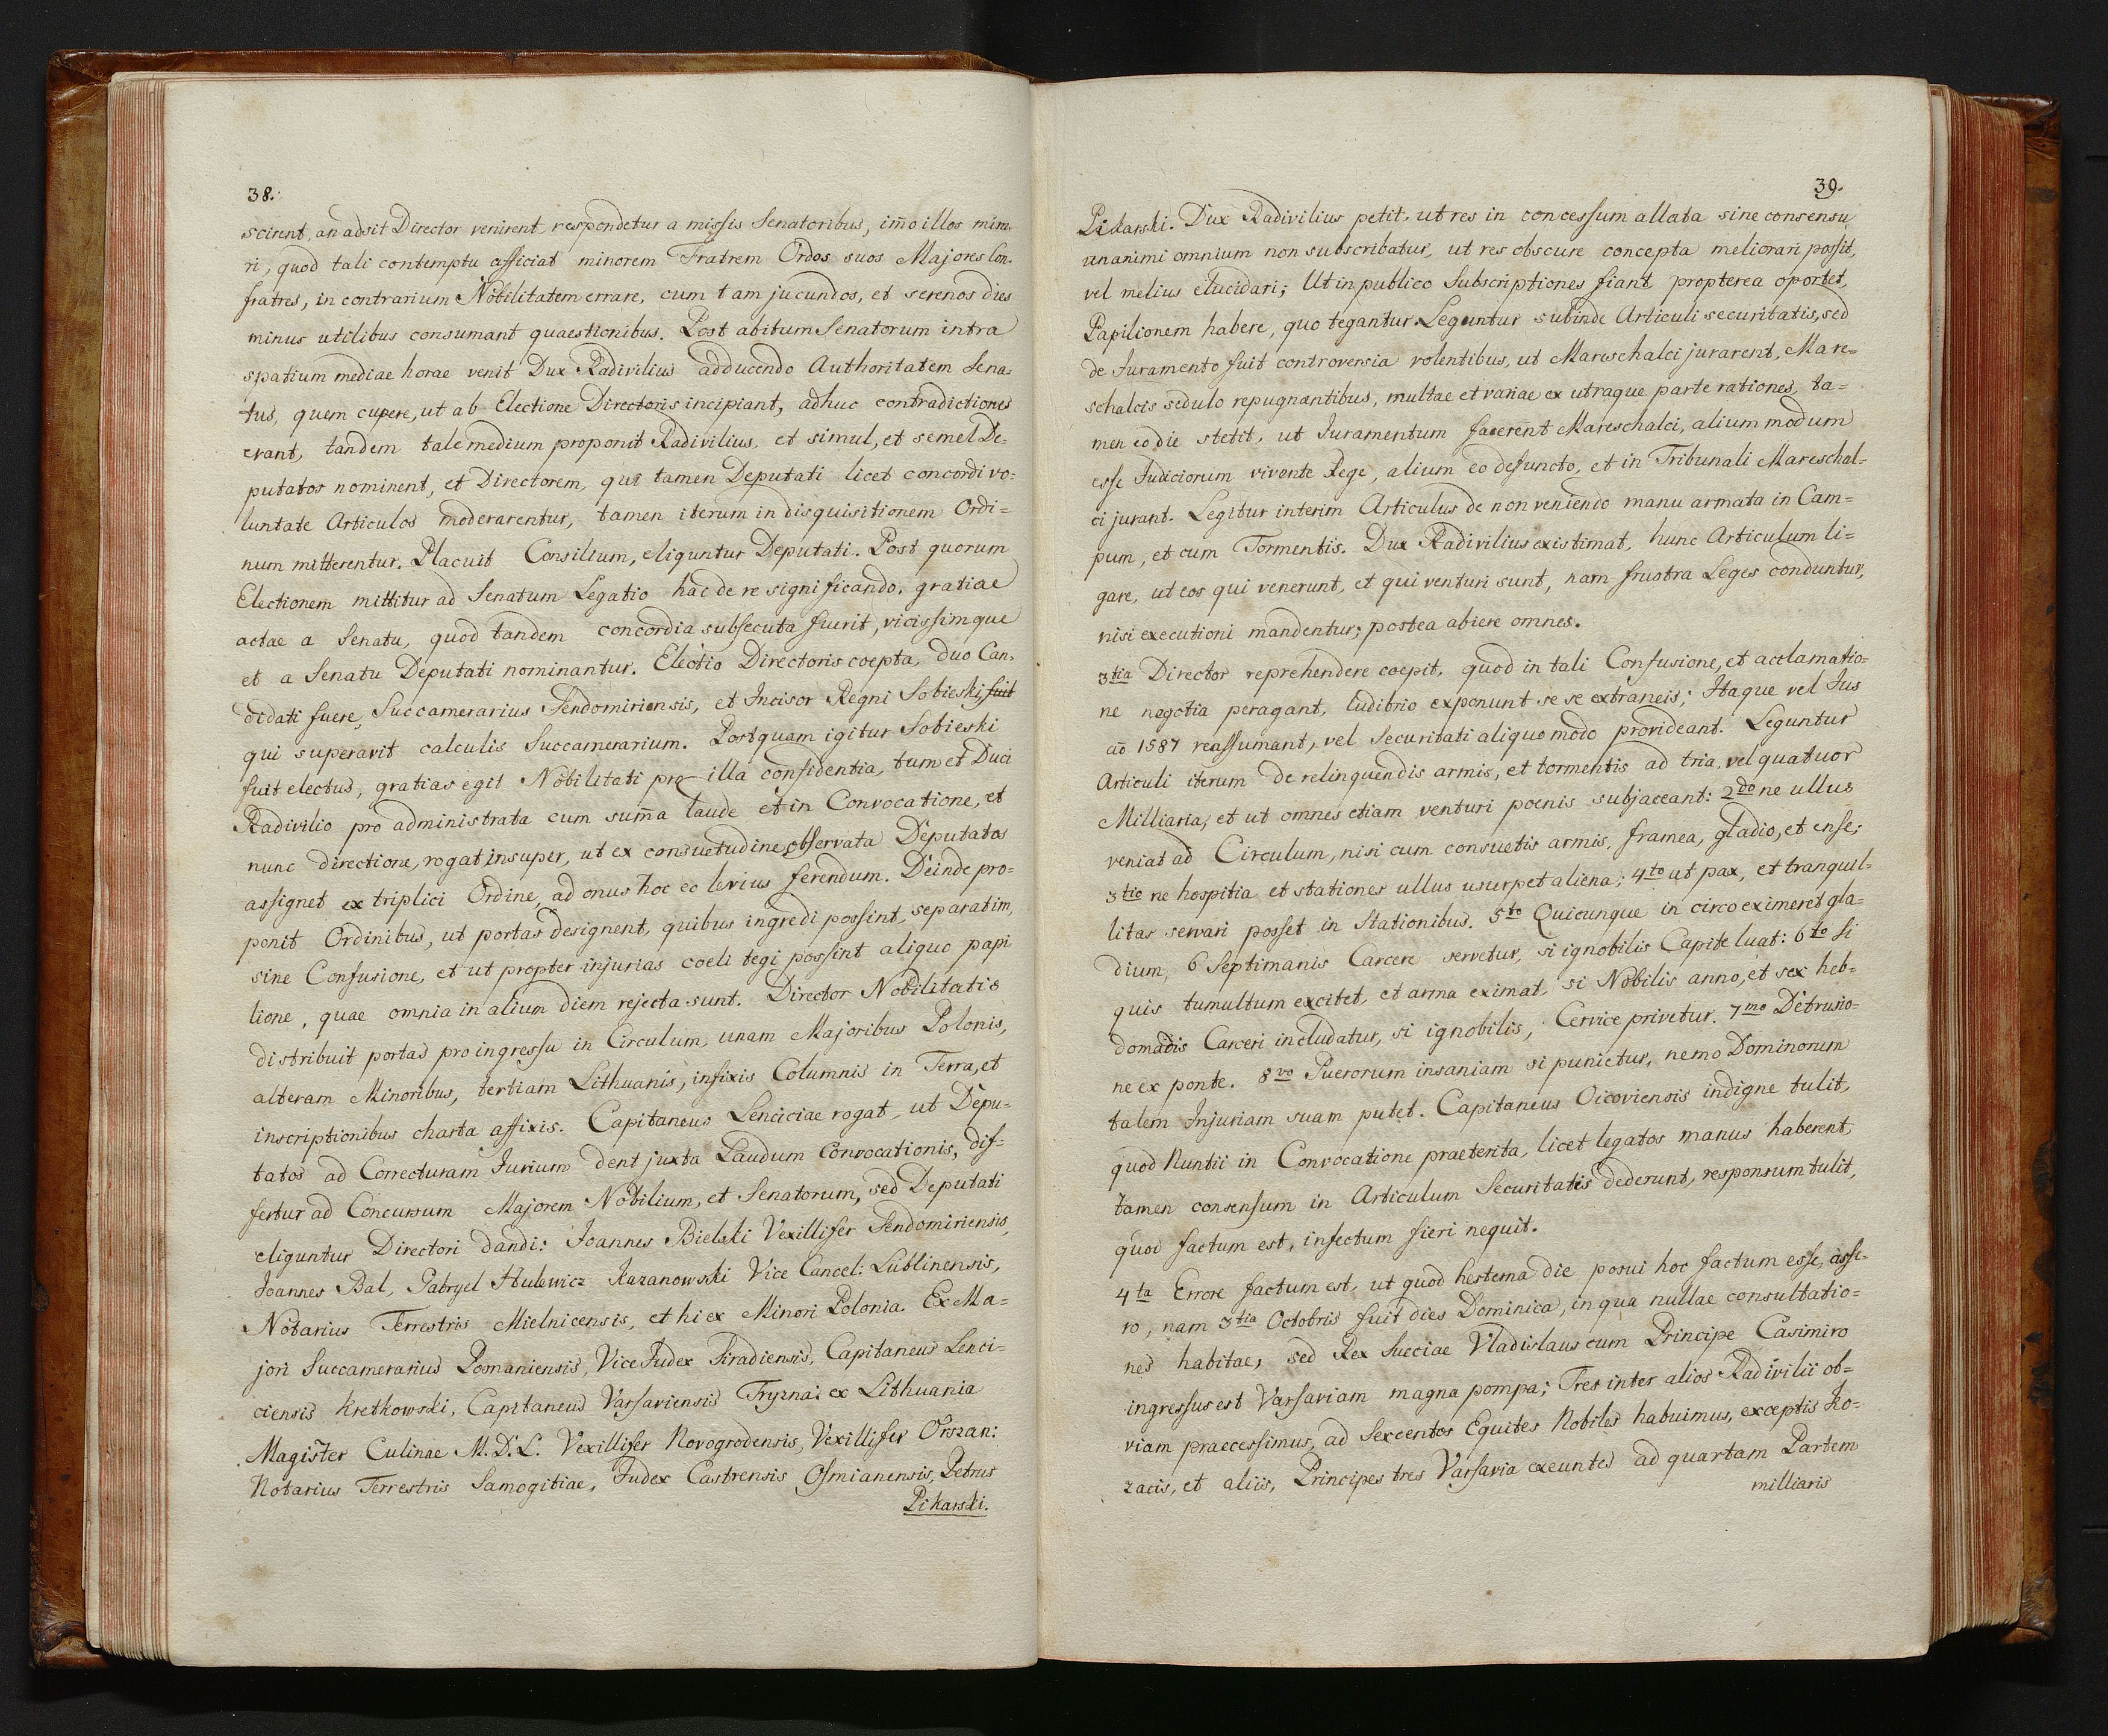 38.
scirent, an adsit Director venirent respondetur a missis Senatoribus, im̄o illos mira
ri, quod tali contemptu afficiat minorem Fratrem Ordos suos Majores Con.
fratres, in contrarium Nobilitatem errare, cum tam jucundos, et serenos dies
minus utilibus consumant quaestionibus. Post abitum Senatorum intra
spatium mediae horae venit Dux Radivilius adducendo Authoritatem Sena-
tus, quem cupere, ut ab Electione Directoris incipiant, adhuc contradictiones
erant, tandem tale medium proponit Radivilius, et simul, et semel De-
putatos nominent, et Directorem, qui tamen Deputati licet concordi vo-
luntate Articulos moderarentur, tamen iterum in disquisitionem Ordi=
num mitterentur. Placuit Consilium, eliguntur Deputati. Post quorum
Electionem mittitur ad Senatum Legatio hac de re significando, gratiae
actae a Senatu, quod tandem concordia subsecuta fuerit, vicissimque
et a Senatu Deputati nominantur. Electio Directoris coepta, duo Can-
didati fuere, Succamerarius Sendomiriensis, et Incisor Regni Sobieski, fuit
qui superavit calculis Succamerarium. Postquam igitur Sobieski
fuit electus, gratias egit Nobilitati pro illa confidentia, tum et Duci
Radivilio pro administrata cum sum̄a laude et in Convocatione, et
nunc directione, rogat insuper, ut ex consuetudine observata Deputatos
assignet ex triplici Ordine, ad onus hoc eo levius ferendum. Deinde pro-
ponit Ordinibus, ut portas designent, quibus ingredi possint, separatim,
sine Confusione, et ut propter injurias coeli tegi possint aliquo papi
lione, quae omnia in alium diem rejecta sunt. Director Nobilitatis
distribuit portas pro ingressu in Circulum, unam Majoribus Polonis,
alteram Minoribus, tertiam Lithuanis, infixis Columnis in Terra, et
inscriptionibus charta affixis. Capitaneus Lenciciae rogat, ut Depu-
tatos ad Correcturam Jurium dent juxta Laudum Convocationis, dif-
fertur ad Concursum Majorem Nobilium, et Senatorum, sed Deputati
eliguntur Directori dandi: Joannes Bielski Vexillifer Sendomiriensis,
Joannes Bal, Gabryel Hulewicz Kazanowski Vice Cancel: Lublinensis,
Notarius Terrestris Mielnicensis, et hi ex Minori Polonia. Ex Ma-
jori Succamerarius Posnaniensis, Vice Judex Siradiensis, Capitaneus Lenci-
ciensis Kretkowski, Capitaneus Varsaviensis Tryzna: ex Lithuania
Magister Culinae M.D.L. Vexillifer Novogrodensis, Vexillifer Orszan:
Notarius Terrestris Samogitiae, Judex Castrensis Osmianensis, Petrus
Pikarski.
39.
Pikarski. Dux Radivilius petit, ut res in concessum allata sine consensu
unanimi omnium non subscribatur, ut res obscure concepta meliorari possit,
vel melius elucidari; Ut in publico Subscriptiones fiant propterea oportet,
Papilionem habere, quo tegantur. Leguntur subinde Articuli securitatis, sed
de Juramento fuit controversia volentibus, ut Mareschalci jurarent, Mare-
schalcis sedulo repugnantibus, multae et variae ex utraque parte rationes, ta=
men eo die stetit, ut Juramentum facerent Mareschalci, alium modum
esse Judiciorum vivente Rege, alium eo defuncto, et in Tribunali Mareschal-
ci jurant. Legitur interim Articulus de non veniendo manu armata in Cam=
pum, et cum Tormentis. Dux Radivilius existimat, hunc Articulum li=
gare, ut eos qui venerunt, et qui venturi sunt, nam frustra Leges conduntur,
nisi executioni mandentur; postea abiere omnes.
3tia Director reprehendere coepit, quod in tali Confusione, et acclamatio=
ne negotia peragant, ludibrio exponunt se se extraneis; Itaque vel Jus
aō 1587 reassumant, vel Securitati aliquo modo provideant. Leguntur
Articuli iterum de relinquendis armis, et tormentis ad tria, vel quatuor
Milliaria, et ut omnes etiam venturi poenis subjaceant: 2do ne ullus
veniat ad Circulum, nisi cum consuetis armis, framea, gladio, et ense;
3tio ne hospitia et stationes ullus usurpet aliena; 4to ut pax, et tranquil-
litas servari posset in Stationibus. 5to Quicunque in circo eximeret gla-
dium, 6 Septimanis Carcere servetur, si ignobilis Capite luat: 6to Si
quis tumultum excitet, et arma eximat, si Nobilis anno, et sex heb=
domadis Carceri includatur, si ignobilis, Cervice privetur. 7mo Detrusio-
ne ex ponte. 8vo Puerorum insaniam si punietur, nemo Dominorum
talem Injuriam suam putet. Capitaneus Oicoviensis indigne tulit,
quod Nuntii in Convocatione praeterita, licet legatos manus haberent,
tamen consensum in Articulum Securitatis dederunt, responsum tulit,
quod factum est, infectum fieri nequit.
4ta Errore factum est, ut quod hesterna die posui hoc factum esse, asse-
ro, nam 3tia Octobris fuit dies Dominica, in qua nullae consultatio=
nes habitae, sed Rex Sueciae Vladislaus cum Principe Casimiro
ingressus est Varsaviam magna pompa; Tres inter alios Radivilii ob=
viam praecessimus, ad Sexcentos Equites Nobiles habuimus, exceptis Ko-
zacis, et aliis, Principes tres Varsavia exeuntes ad quartam Partem
milliaris